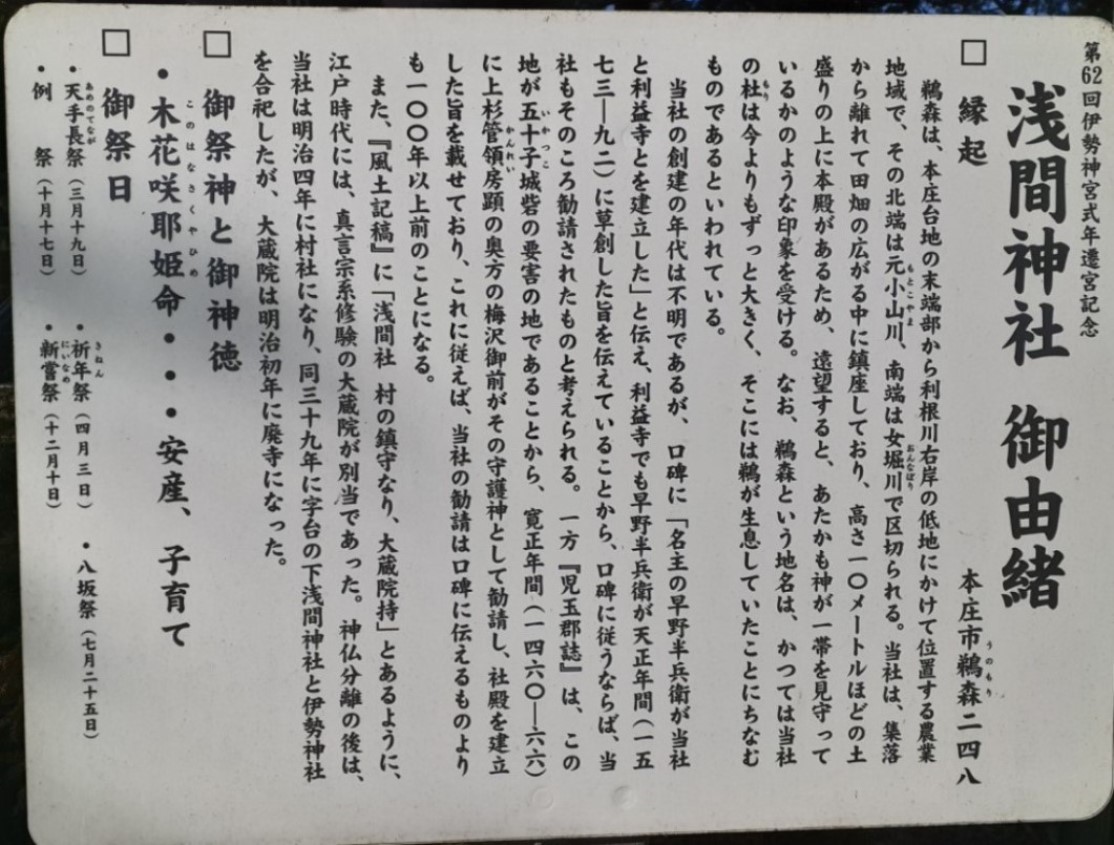 第62回伊勢神宮式年遷宮記念
浅間神社 御由緒
本庄市鵜森二四八
□ 縁起
鵜森は、本庄台地の末端部から利根川右岸の低地にかけて位置する農業
地域で、その北端は元小山川、南端は女堀川で区切られる。当社は、集落
から離れて田畑の広がる中に鎮座しており、高さ一〇メートルほどの土
盛りの上に本殿があるため、遠望すると、あたかも神が一帯を見守って
いるかのような印象を受ける。なお、鵜森という地名は、かつては当社
の社は今よりもずっと大きく、そこには鵜が生息していたことにちなむ
ものであるといわれている。
当社の創建の年代は不明であるが、口碑に「名主の早野半兵衛が当社
と利益寺とを建立した」と伝え、利益寺でも早野半兵衛が天正年間(一五
七三―九二)に草創した旨を伝えていることから、口碑に従うならば、当
社もそのころ勧請されたものと考えられる。一方『児玉郡誌』は、この
地が五十子城砦の要害の地であることから、寛正年間(一四六〇―六六)
に上杉管領房顕の奥方の梅沢御前がその守護神として勧請し、社殿を建立
した旨を載せており、これに従えば、当社の勧請は口碑に伝えるものより
も一〇〇年以上前のことになる。
また、『風土記稿』に「浅間社 村の鎮守なり、大蔵院持」とあるように、
江戸時代には、真言宗系修験の大蔵院が別当であった。神仏分離の後は、
当社は明治四年に村社になり、同三十九年に字台の下浅間神社と伊勢神社
を合祀したが、大蔵院は明治初年に廃寺になった。
□ 御祭神と御神徳
・木花咲耶姫命・・・安産、子育て
□ 御祭日
・天手長祭(三月十九日) ・祈年祭(四月三日) ・八坂祭(七月二十五日)
・例 祭(十月十七日) ・新嘗祭(十二月十日)